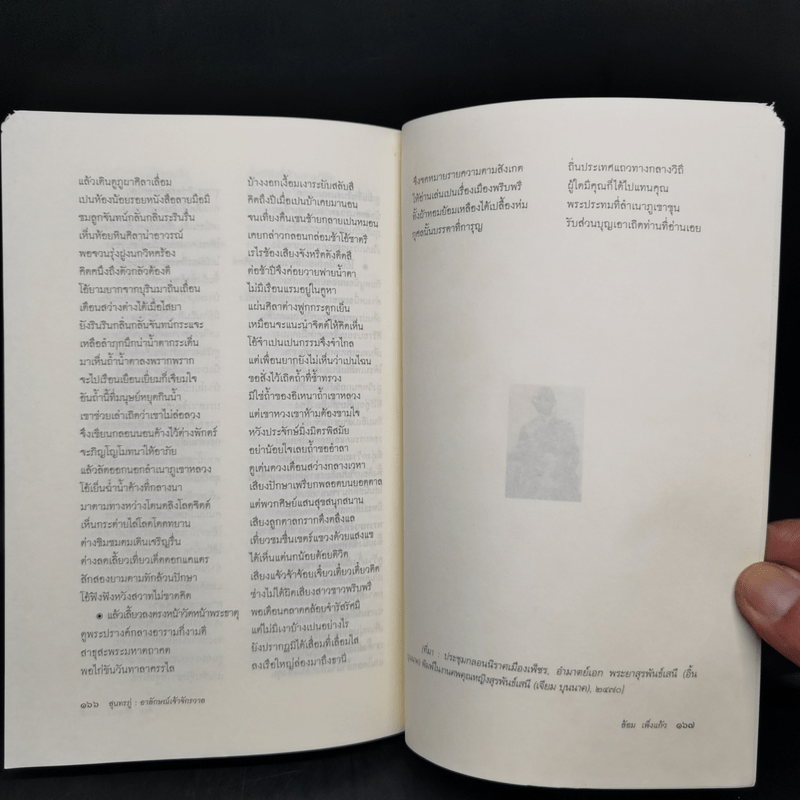 แล้วเดินดูภูผาศิลาเลื่อม บ้างงอกเงื้อมเงาระยับสลับสี
เปนห้องน้อยรอยหนังสือลายมือมี คิดถึงปีเมื่อเปนบ้าเคยมานอน
ชมลูกจันทน์กลั่นกลิ่นระรินรื่น จนเที่ยงคืนเชนซ้ายกลายเปนหมอน
เห็นห้องหินศิลาน่าอาวรณ์ เคยกล่าวกลอนกล่อมช้าโอ้ชาตรี
พอจวนรุ่งฝูงนกวิหคร้อง เรไรซ้องเสียงจังหรีดดังดีดสี
คิดคนึงถึงตัวกลัวต้องตี ต่อช้าปีจึงค่อยวายฟายน้ำตา
โอ้ยามยากจากบุรินมาถิ่นเถื่อน ไม่มีเรือนแรมอยู่ในคูหา
เดือนสว่างต่างไต้เมื่อไสยา แผ่นศิลาต่างฟูกกระดูกเย็น
ยังรินรินกลิ่นกลั่นจันทน์กระแจะ เหมือนจะแนะนำจิตต์ให้คิดเห็น
เหลือลำฦกนึกน่าน้ำตากระเด็น โอ้จำเปนเปนกรรมจึงจำไกล
มาเห็นถ้ำน้ำตาลงพรากพราก แต่เพื่อนยากยังไม่เห็นว่าเปนไฉน
จะไปเรือนเยือนเยี่ยมก็เจียมใจ ขอสั่งไว้เถิดถ้ำที่ช้ำทรวง
อันถ้ำนี้ที่มนุษย์หยุดกินน้ำ มิใช่ถ้ำของอิเหนาถ้ำเขาหลวง
เขาช่วยเล่าเถิดว่าเขาไม่ล่อลวง แต่เขาหวงเขาห้ามต้องขามใจ
จึงเขียนกลอนนอนค้างไว้ต่างพักตร์ หวังประจักษ์มิ่งมิตรพิสมัย
จะภิญโญโมทนาให้อาภัย อย่าน้อยใจเลยถ้ำขออำลา
แล้วลัดออกนอกลำเนาภูเขาหลวง ดูเด่นดวงเดือนสว่างกลางเวหา
โอ้เย็นฉ่ำน้ำค้างที่กลางนา เสียงปักษาเพรียกพลอดบนยอดตาล
มาตามทางหว่างโตนดลิงโลดจิตต์ แต่พวกศิษย์แสนสุขสนุกสนาน
เห็นกระต่ายไล่โลดโดดทยาน เสียงลูกตาลกรากดึ่งคลึ้งแล
ต่างชิมชมดมเดินเจริญรื่น เที่ยวชมชื่นเชตร์แขวงด้วยแสงแข
ต่างลดเลี้ยวเที่ยวเด็ดดอกแคแตร ได้เห็นแต่นกน้อยต้อยติวิด
สักสองยามตามทักอ้วนปักษา เสียงแจ้วจ้าจ้อยเจี๋ยวเตี๋ยวเตี๋ยวติด
โอ้ฟังฟังหวังสวาทไม่ขาดคิด ช่างไม่ได้ผิดเสียงสาวชาวพริบพรี
๏ แล้วเลี้ยวลงตรงหน้าวัดหน้าพระธาตุ พอเดือนคลาดคล้อยจำรัสรัศมี
ดูพระปรางค์กลางอารามก็งามดี แต่ไม่มีเงาบ้างเปนอย่างไร
สาธุสะพระมหาตถาคต ยังปรากฏมิได้เสื่อมที่เลื่อมใส
พอไก่ขันวันทาลาครรไล ลงเรือใหญ่ล่องมาถึงธานี
๑๖๖ สุนทรภู่ : อาลักษณ์เจ้าจักรวาล
จึงจดหมายรายความตามสังเกต ถิ่นประเทศแถวทางกลางวิถี
ให้อ่านเล่นเปนเรื่องเมืองพริบพรี ผู้ใดมีคุณก็ได้ไปแทนคุณ
ทั้งผ้าหอมย้อมเหลืองได้เปลื้องห่ม พระประทมที่ลำเนาภูเขาขุน
กุศลนั้นบรรดาที่การุญ รับส่วนบุญเอาเถิดท่านที่อ่านเอย
(ที่มา : ประชุมกลอนนิราศเมืองเพ็ชร, อำมาตย์เอก พระยาสุรพันธ์เสนี (อิ้น
บุนนาค) พิมพ์ในงานศพคุณหญิงสุรพันธ์เสนี (เจียม บุนนาค), ๒๔๗๐)
ล้อม เพ็งแก้ว ๑๖๗